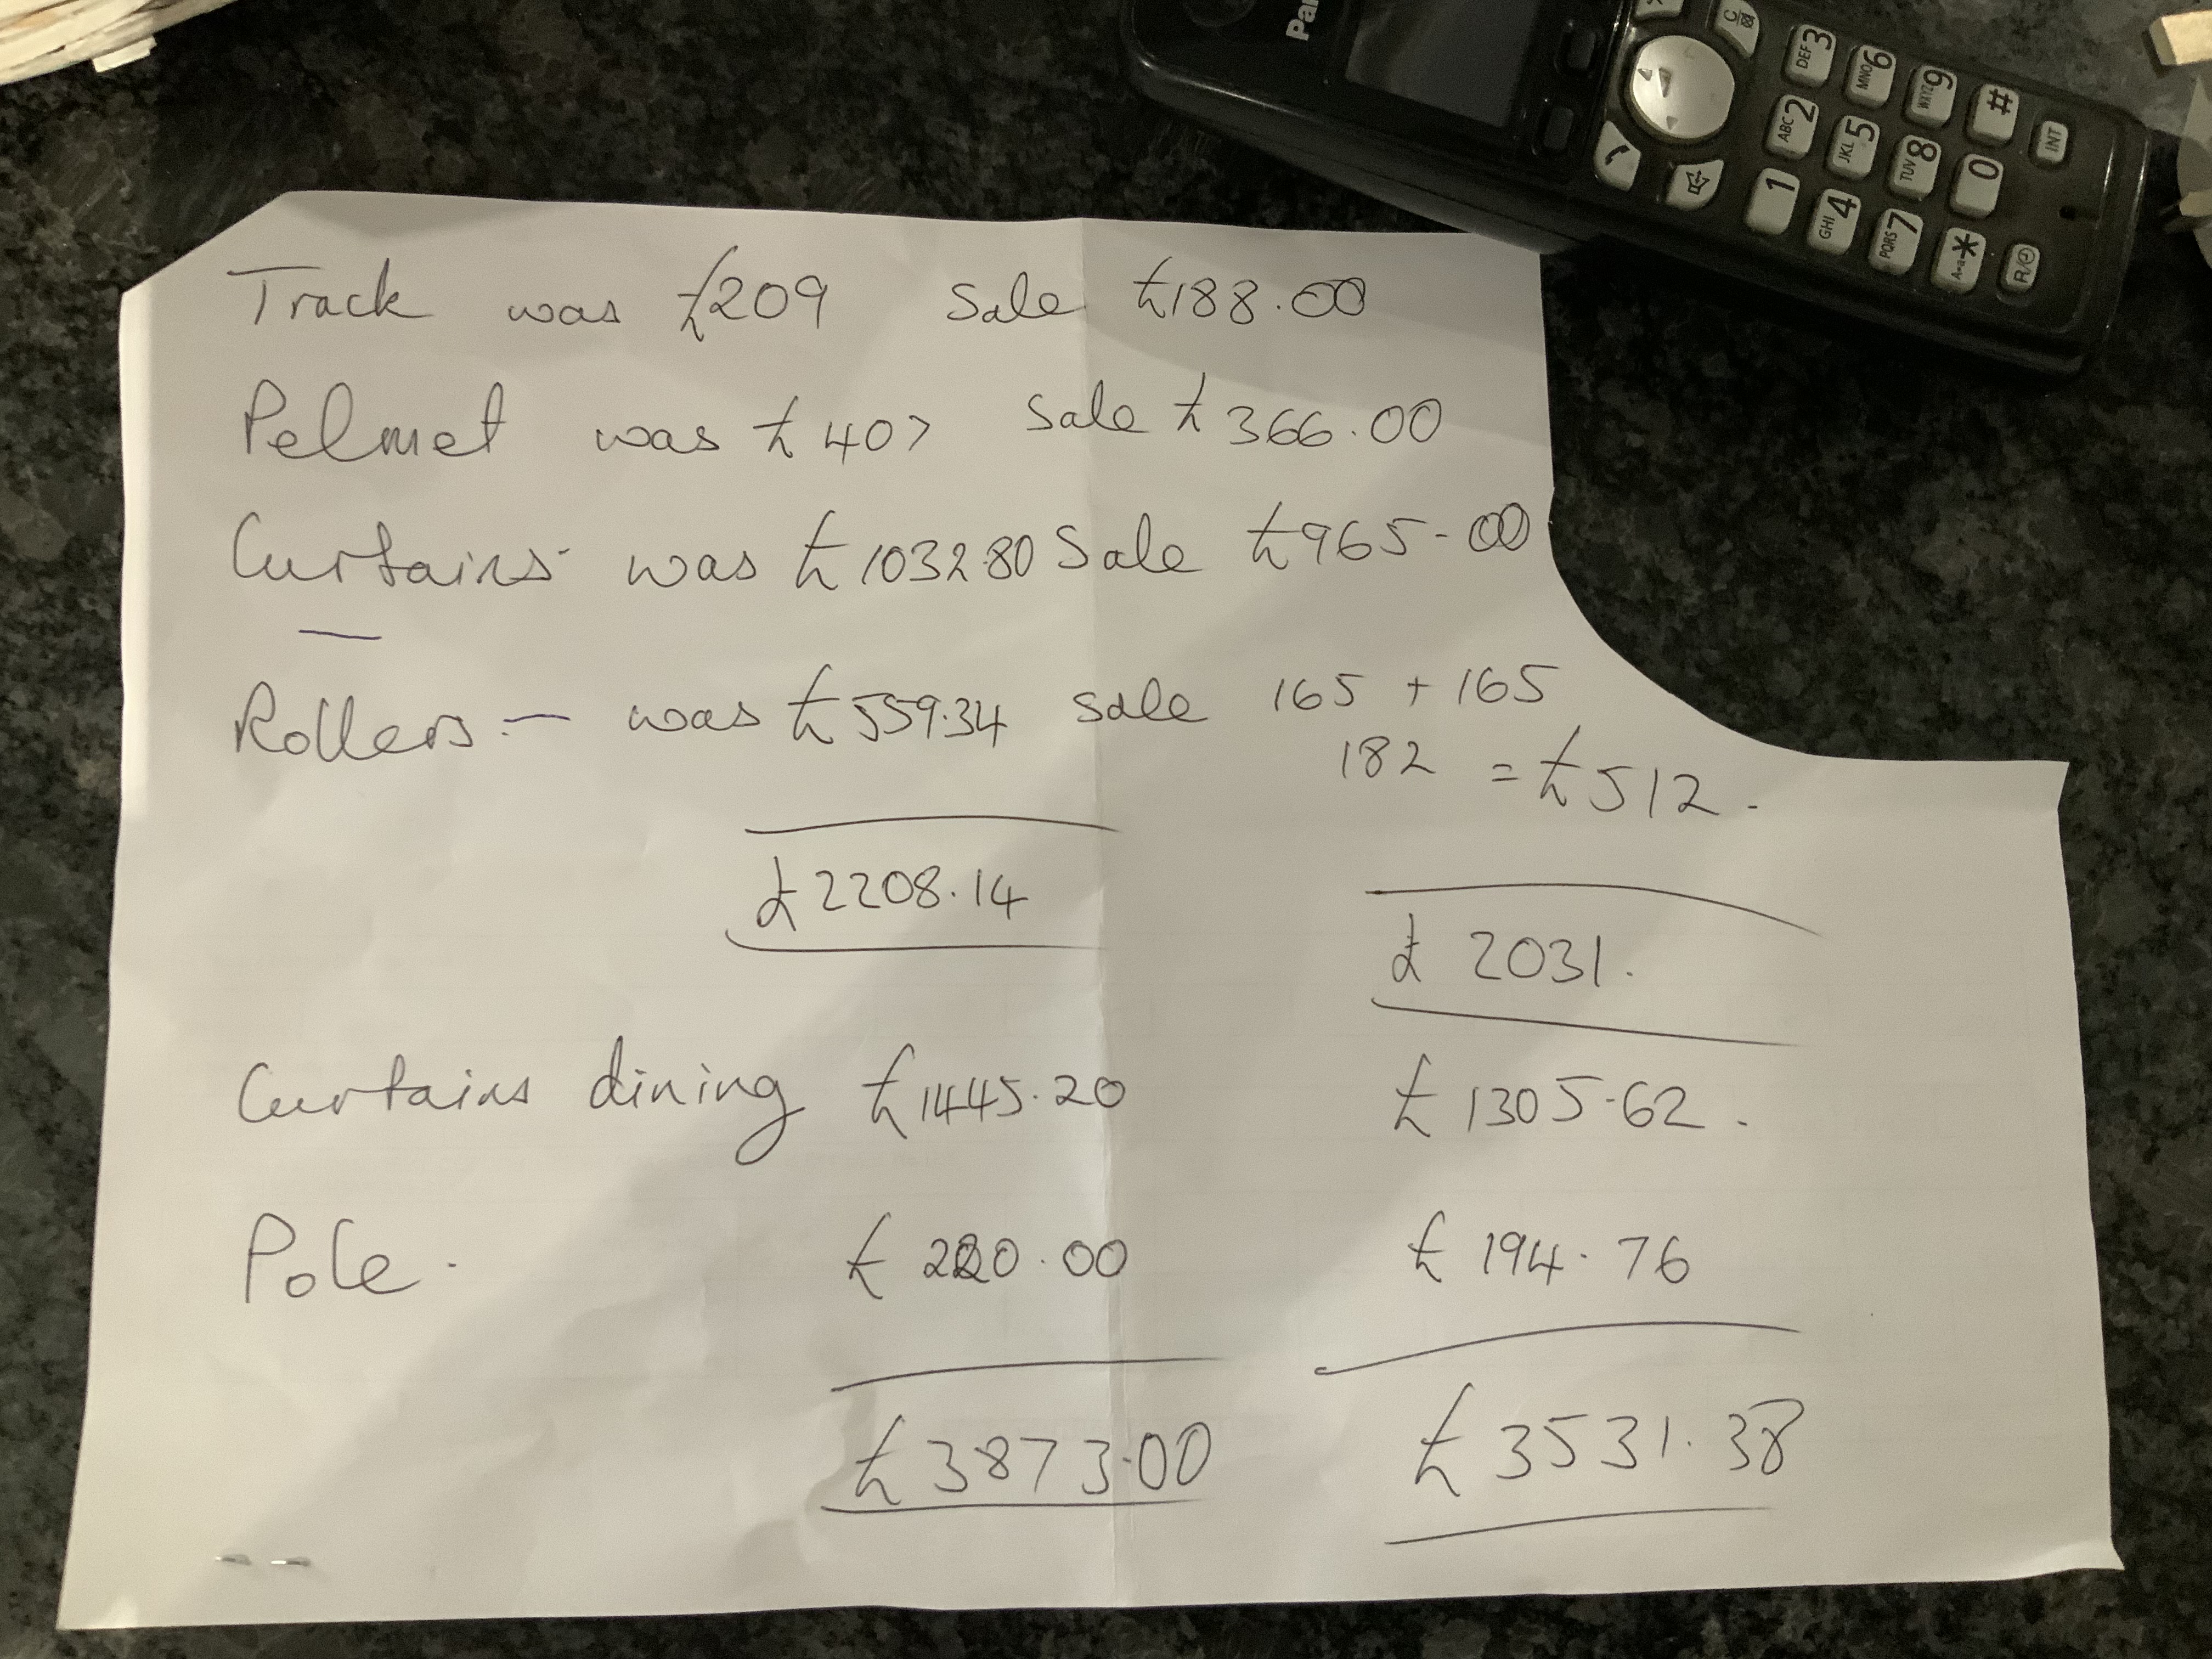 Pan
C
DEF3
MNO6
WXYZ9
#
INT
ABC2
JKL5
TUV8
0
1
GHI4
PQRS7
A-a*
R/
Track was £209 Sale £188.00
Pelmet was £407 Sale £366.00
Curtains was £1032.80 Sale £965-00
Rollers - was £559.34 sale 165 + 165
182 = £512.
£2208.14
£ 2031.
Curtains dining £1445.20 £1305.62.
Pole. £220.00 £194.76
£3873.00 £3531.38